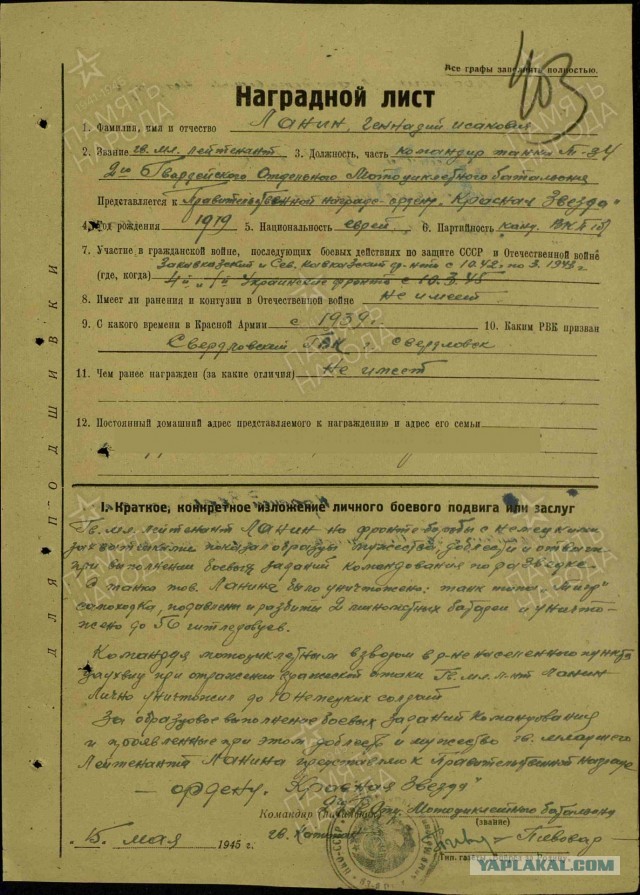 403
Все графы заполнять полностью.
Наградной лист
1. Фамилия, имя и отчество Ланин, Геннадий Исакович
2. Звание гв. мл. лейтенант 3. Должность, часть командир танка Т-34
2го Гвардейского Отдельного Мотоциклетного батальона
Представляется к Правительственной награде - ордену „Красная Звезда"
4. Год рождения 1919 5. Национальность еврей 6. Партийность канд. ВКП(б)
7. Участие в гражданской войне, последующих боевых действиях по защите СССР и Отечественной войне
Закавказский и Сев. Кавказский фр-нт с 10.42 по 3.1943 г.
(где, когда) 4й, 1й Украинские фронты с 10.3.45
8. Имеет ли ранения и контузии в Отечественной войне не имеет
9. С какого времени в Красной Армии с 1939 г. 10. Каким РВК призван
Свердловский ГВК г. Свердловск
11. Чем ранее награжден (за какие отличия) Не имеет
12. Постоянный домашний адрес представляемого к награждению и адрес его семьи
I. Краткое, конкретное изложение личного боевого подвига или заслуг
Гв. мл. лейтенант Ланин на фронте борьбы с немецкими
захватчиками показал образцы мужества, доблести и отваги
при выполнении боевых заданий командования по разведке.
С танка тов. Ланина было уничтожено: танк типа „Тигр"
самоходка, подавлены и разбиты 2 минометных батареи и уничто-
жено до 50 гитлеровцев.
Командуя мотоциклетным взводом в р-не населенного пункта
при отражении вражеской атаки Гв. мл. л-нт Ланин
лично уничтожил до 10 немецких солдат
За образцовое выполнение боевых заданий командования
и проявленные при этом доблесть и мужество гв. младшего
Лейтенанта Ланина представляю к Правительственной награде
— ордену „Красная Звезда"
Командир (начальник) Отд. Мотоциклетного батальона
(звание)
гв. капитан Пивовар
15. мая 1945 г.
ДЛЯ ПОДШИВКИ
ПАМЯТЬ НАРОДА
ПАМЯТЬ НАРОДА
ПАМЯТЬ НАРОДА
ПАМЯТЬ НАРОДА
YAPLAKAL.COM